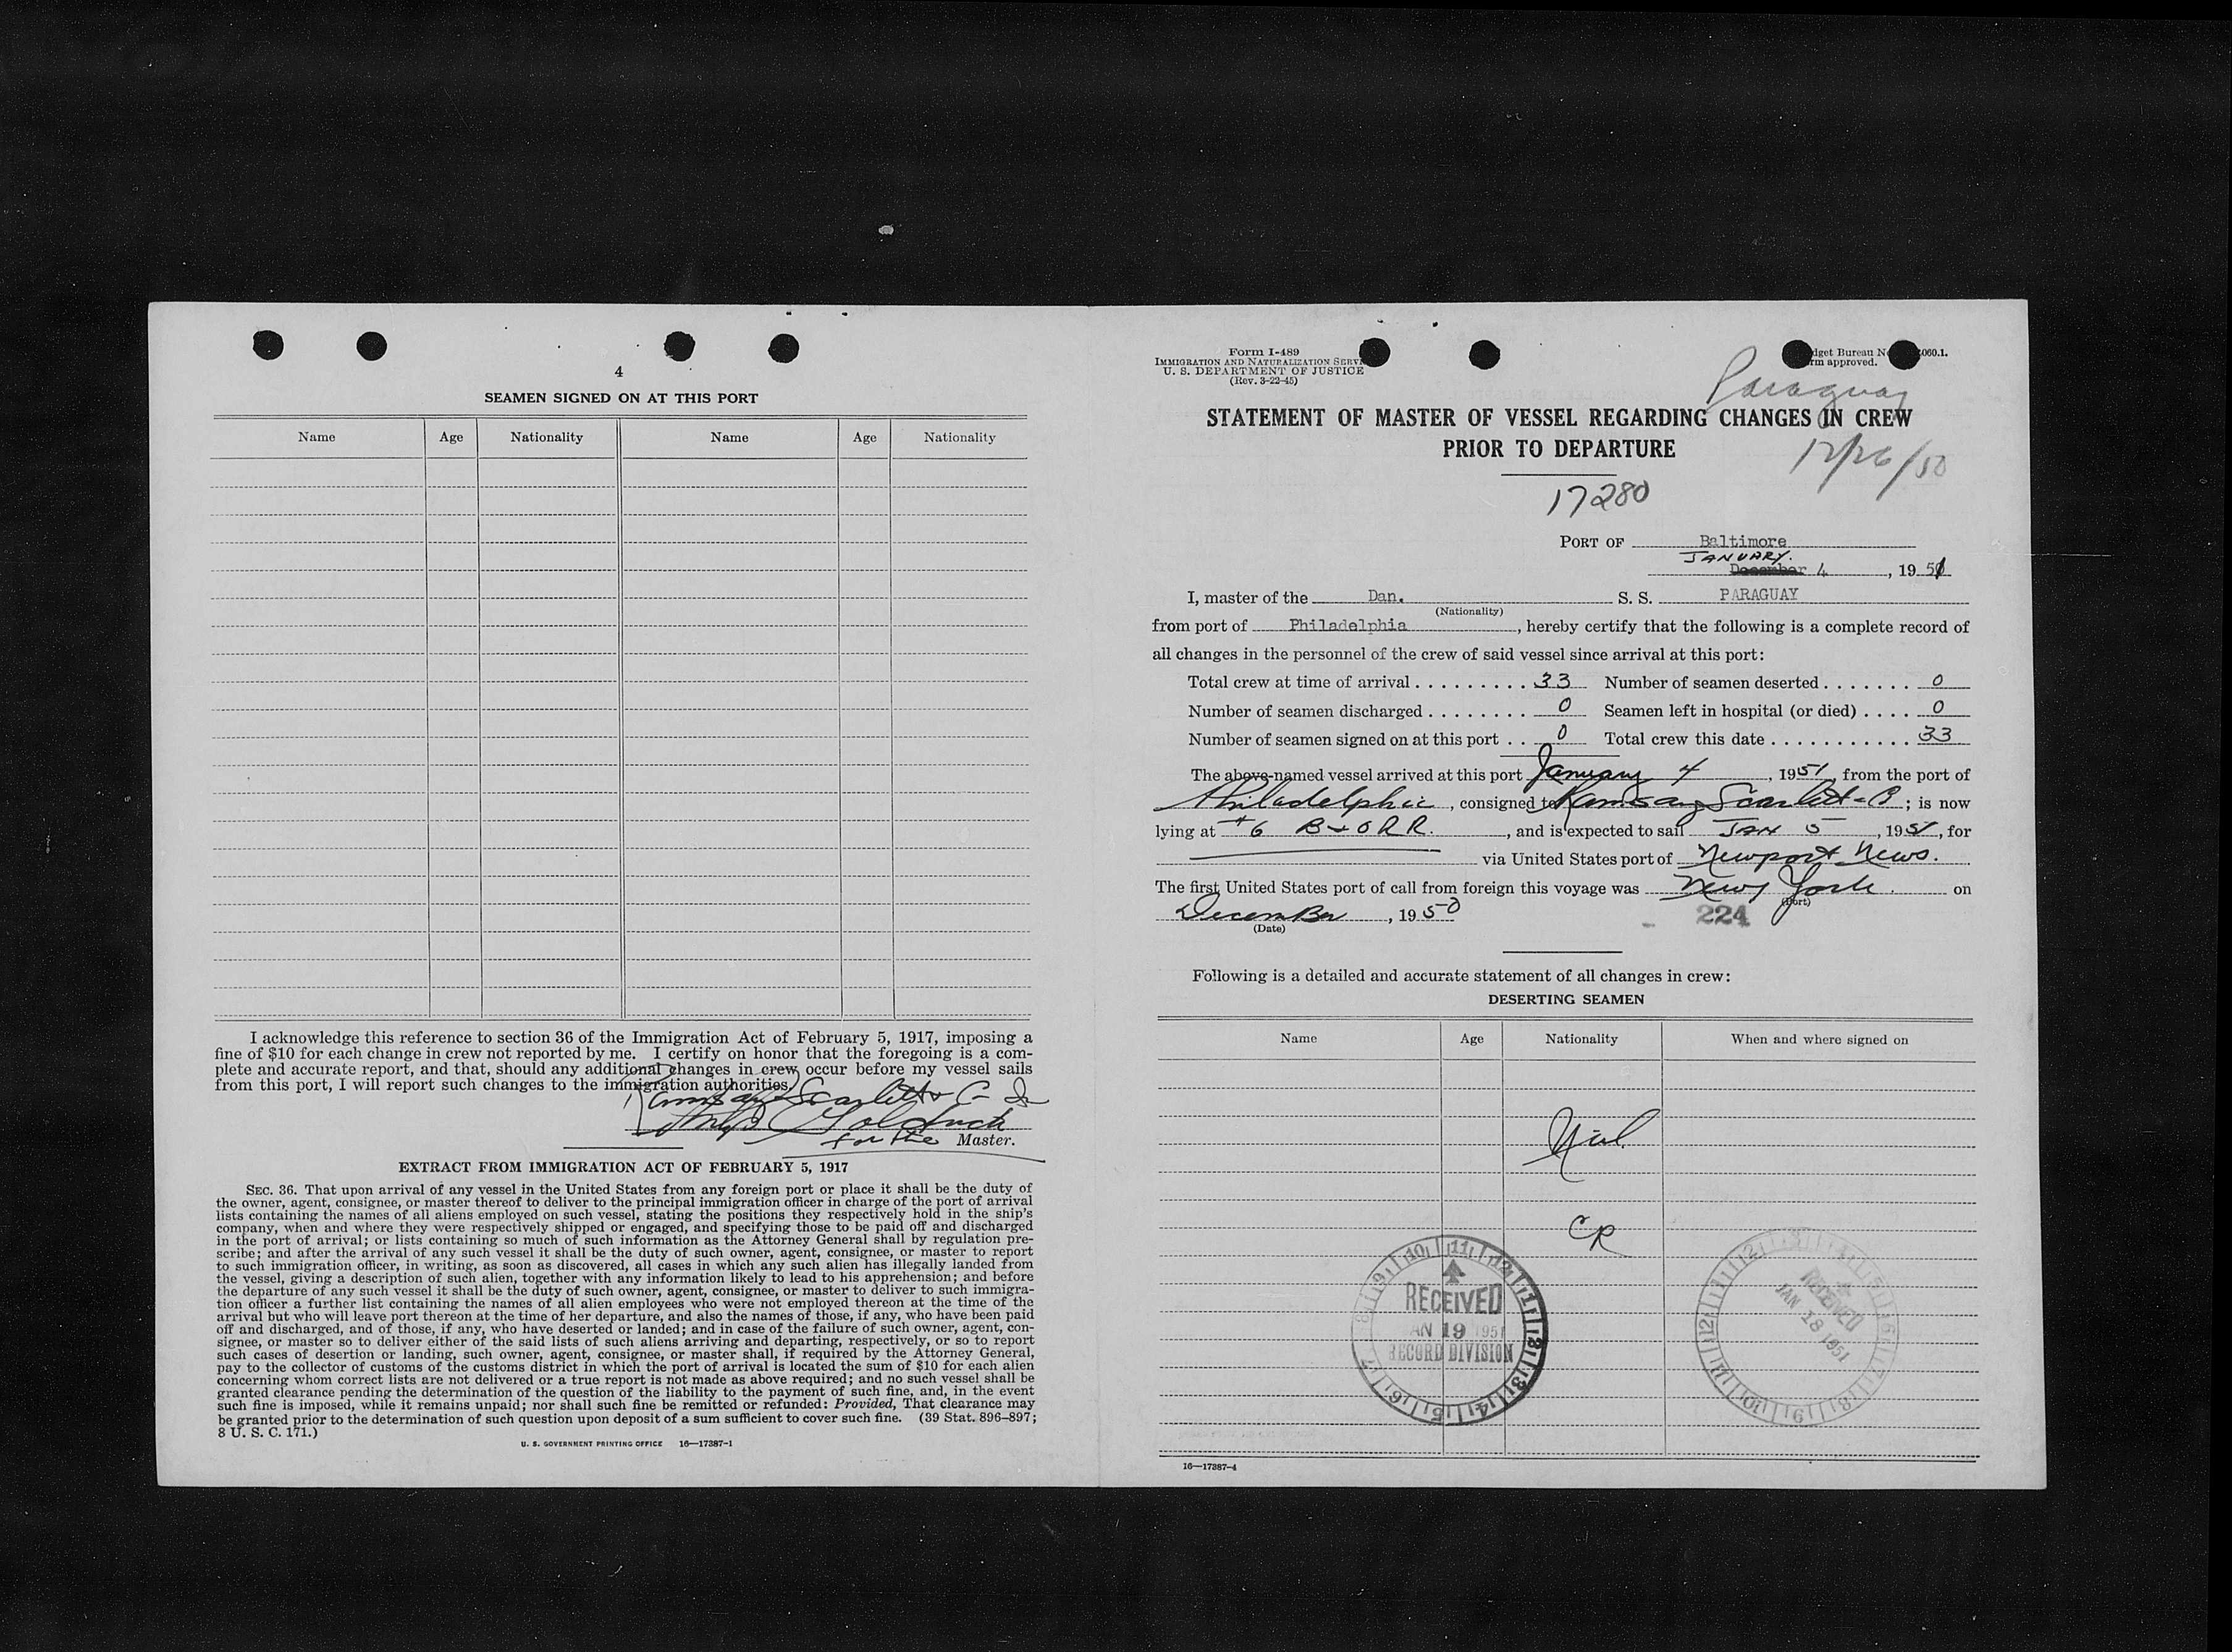 4
SEAMEN SIGNED ON AT THIS PORT
Name Age Nationality Name Age Nationality
I acknowledge this reference to section 36 of the Immigration Act of February 5, 1917, imposing a
fine of $10 for each change in crew not reported by me. I certify on honor that the foregoing is a com-
plete and accurate report, and that, should any additional changes in crew occur before my vessel sails
from this port, I will report such changes to the immigration authorities.
Ramsay Scarlett & C
for the Master.
EXTRACT FROM IMMIGRATION ACT OF FEBRUARY 5, 1917
SEC. 36. That upon arrival of any vessel in the United States from any foreign port or place it shall be the duty of
the owner, agent, consignee, or master thereof to deliver to the principal immigration officer in charge of the port of arrival
lists containing the names of all aliens employed on such vessel, stating the positions they respectively hold in the ship's
company, when and where they were respectively shipped or engaged, and specifying those to be paid off and discharged
in the port of arrival; or lists containing so much of such information as the Attorney General shall by regulation pre-
scribe; and after the arrival of any such vessel it shall be the duty of such owner, agent, consignee, or master to report
to such immigration officer, in writing, as soon as discovered, all cases in which any such alien has illegally landed from
the vessel, giving a description of such alien, together with any information likely to lead to his apprehension; and before
the departure of any such vessel it shall be the duty of such owner, agent, consignee, or master to deliver to such immigra-
tion officer a further list containing the names of all alien employees who were not employed thereon at the time of the
arrival but who will leave port thereon at the time of her departure, and also the names of those, if any, who have been paid
off and discharged, and of those, if any, who have deserted or landed; and in case of the failure of such owner, agent, con-
signee, or master so to deliver either of the said lists of such aliens arriving and departing, respectively, or so to report
such cases of desertion or landing, such owner, agent, consignee, or master shall, if required by the Attorney General,
pay to the collector of customs of the customs district in which the port of arrival is located the sum of $10 for each alien
concerning whom correct lists are not delivered or a true report is not made as above required; and no such vessel shall be
granted clearance pending the determination of the question of the liability to the payment of such fine, and, in the event
such fine is imposed, while it remains unpaid; nor shall such fine be remitted or refunded: Provided, That clearance may
be granted prior to the determination of such question upon deposit of a sum sufficient to cover such fine. (39 Stat. 896–897;
8 U. S. C. 171.)
U. S. GOVERNMENT PRINTING OFFICE 16—17387-1
Form I-489
IMMIGRATION AND NATURALIZATION SERV
U. S. DEPARTMENT OF JUSTICE
(Rev. 3-22-45)
dget Bureau N 060.1.
rm approved.
Paraguay
STATEMENT OF MASTER OF VESSEL REGARDING CHANGES IN CREW
PRIOR TO DEPARTURE
12/26/50
17280
PORT OF Baltimore
JANUARY.
December 4, 1951
I, master of the Dan. S. S. PARAGUAY
(Nationality)
from port of Philadelphia, hereby certify that the following is a complete record of
all changes in the personnel of the crew of said vessel since arrival at this port:
Total crew at time of arrival . . . . . . . . . 33 Number of seamen deserted . . . . . . . 0
Number of seamen discharged . . . . . . . . 0 Seamen left in hospital (or died) . . . . 0
Number of seamen signed on at this port . . 0 Total crew this date . . . . . . . . . . . 33
The above-named vessel arrived at this port January 4, 1951, from the port of
Philadelphia, consigned to Ramsay Scarlett - C; is now
lying at #6 B & O RR., and is expected to sail JAN 5, 1951, for
via United States port of Newport News.
The first United States port of call from foreign this voyage was New York. on
(Port)
December, 1950
(Date)
224
Following is a detailed and accurate statement of all changes in crew:
DESERTING SEAMEN
Name Age Nationality When and where signed on
Nil
CR
RECEIVED
AN 19 1951
RECORD DIVISION
RECEIVED
JAN 18 1951
16—17387-4